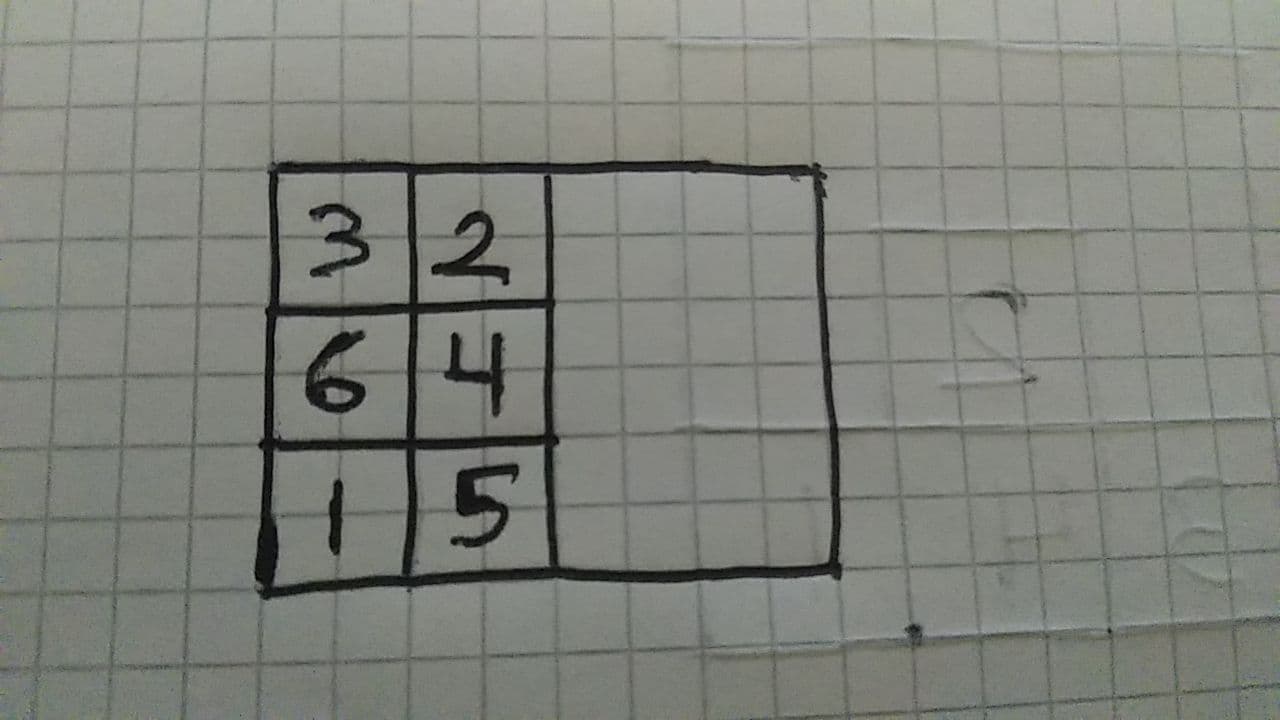 3 2
6 4
1 5